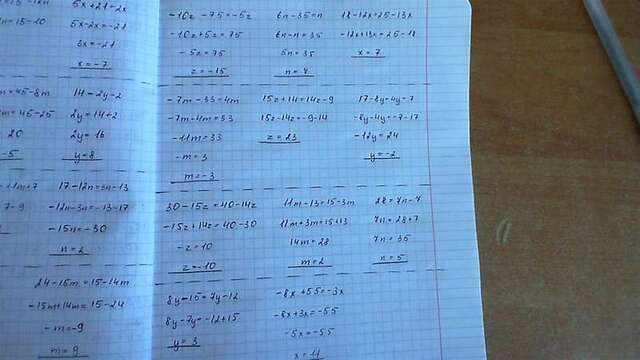 5x+21=2x
5x-2x=-21
3x=-21
x=-7
-10z-75=-5z
-10z+5z=75
-5z=75
z=-15
6n-35=n
6n-n=35
5n=35
n=7
18-12x=25-13x
-12x+13x=25-18
x=7
14=2y-2
2y=14+2
2y=16
y=8
-7m-33=4m
-7m-4m=33
-11m=33
-m=3
m=-3
15z+14=14z-9
15z-14z=-9-14
z=23
17-8y=4y-7
-8y-4y=-7-17
-12y=24
y=-2
17-12n=3n-13
-12n-3n=-13-17
-15n=-30
n=2
30-15z=40-14z
-15z+14z=40-30
-z=10
z=-10
11m-13=15-3m
11m+3m=15+13
14m=28
m=2
28=7n-7
7n=28+7
7n=35
n=5
24-15m=15-14m
-15m+14m=15-24
-m=-9
m=9
8y-15=7y-12
8y-7y=-12+15
y=3
-8x+55=-3x
-8x+3x=-55
-5x=-55
x=11